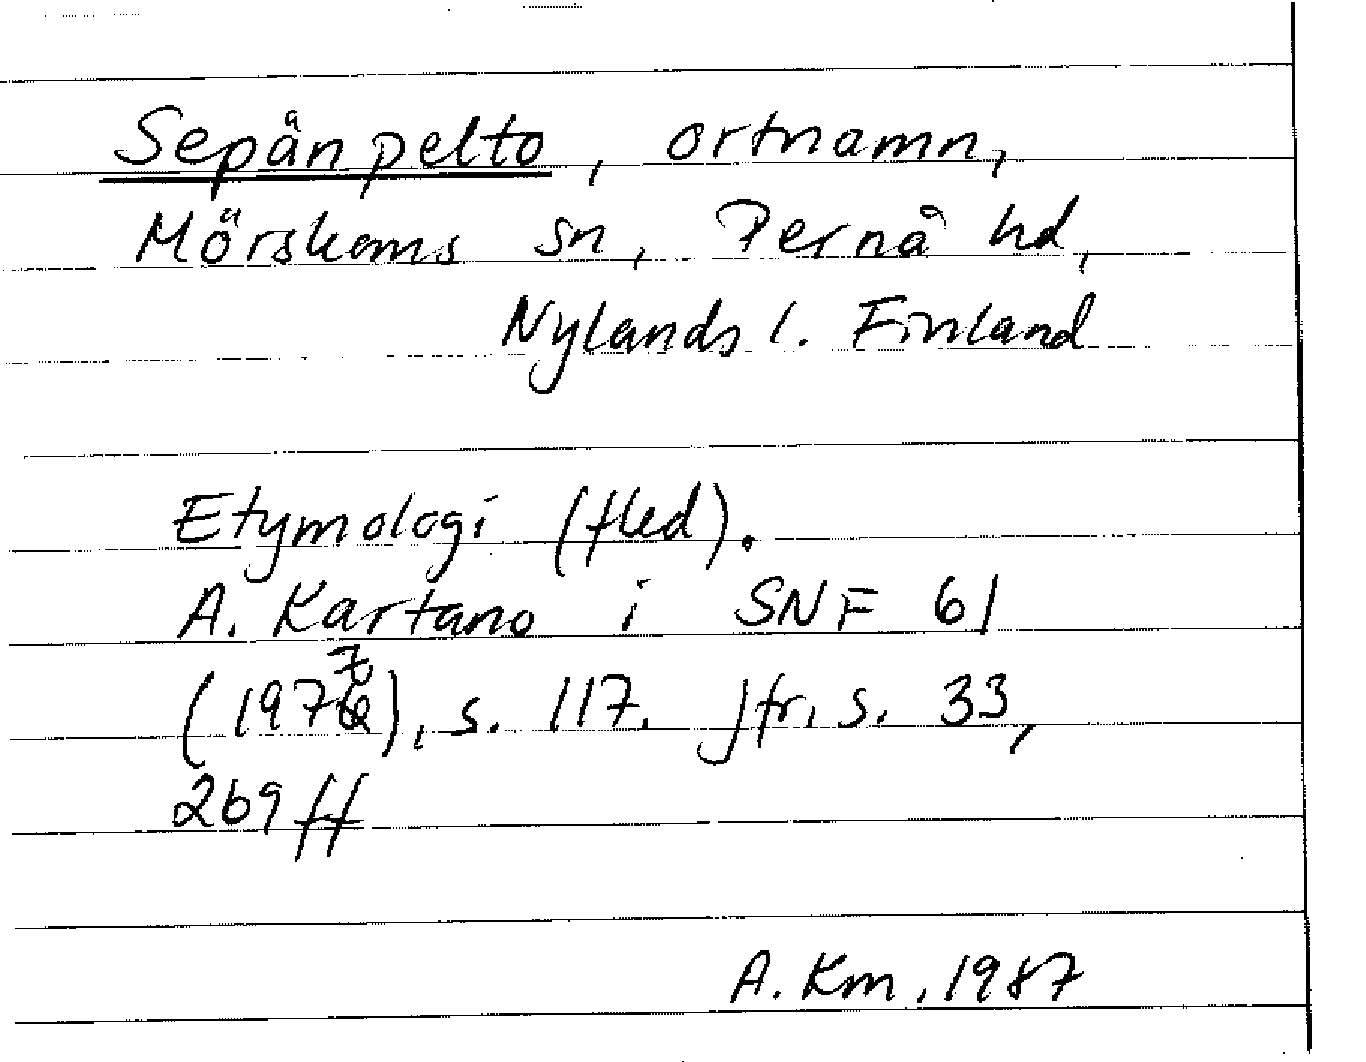 Sepänpelto, ortnamn,
Mörskoms sn, Pernå hd,
Nylands l. Finland
Etymologi (fled).
A. Kartano i SNF 61
(1977), s. 117. Jfr. s. 33,
269 ff
A. Km, 1987